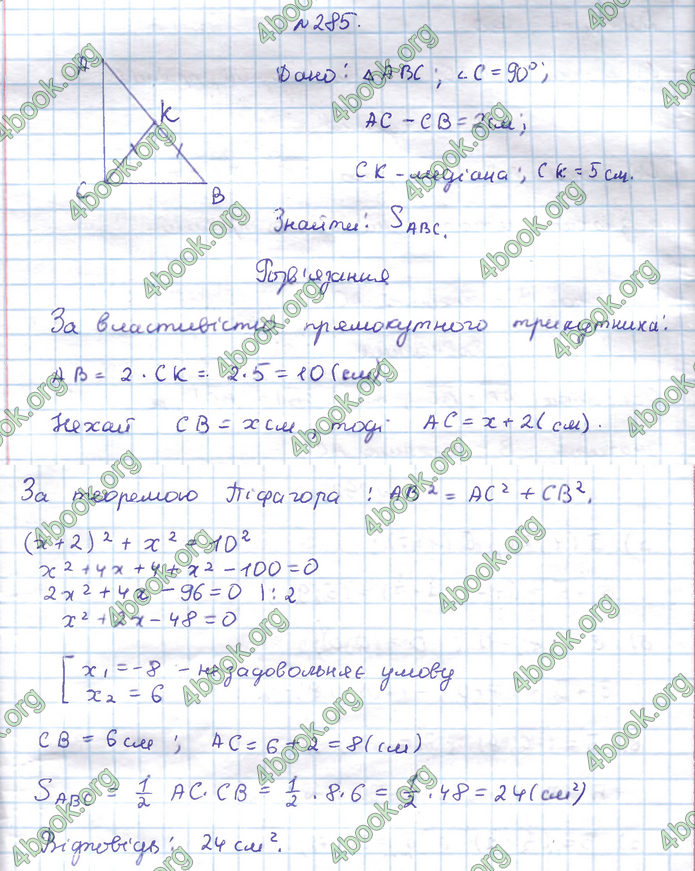 №285.
Дано: △ABC; ∠C=90°;
AC - CB = 2см;
CK - медіана; CK = 5 см.
Знайти: S_ABC.
Розв'язання
A
K
C
B
За властивістю прямокутного трикутника:
AB = 2 · CK = 2·5 = 10 (см)
Нехай CB = x см, тоді AC = x + 2 (см).
За теоремою Піфагора: AB² = AC² + CB².
(x+2)² + x² = 10²
x² + 4x + 4 + x² - 100 = 0
2x² + 4x - 96 = 0 |:2
x² + 2x - 48 = 0
[ x₁ = -8 - не задовольняє умову
x₂ = 6
CB = 6 см; AC = 6 + 2 = 8 (см)
S_ABC = 1/2 AC·CB = 1/2 · 8·6 = 1/2 · 48 = 24 (см²)
Відповідь: 24 см².
4book.org